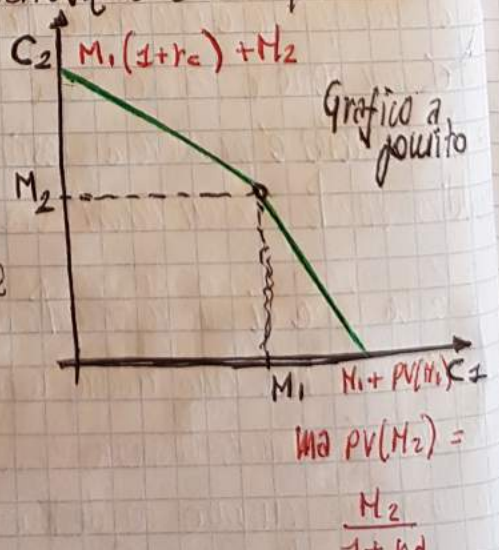 C2 M1(1+rc)+M2
Grafico a
gomito
M2
M1 M1+PV(M2) C1
ma PV(M2) =
M2